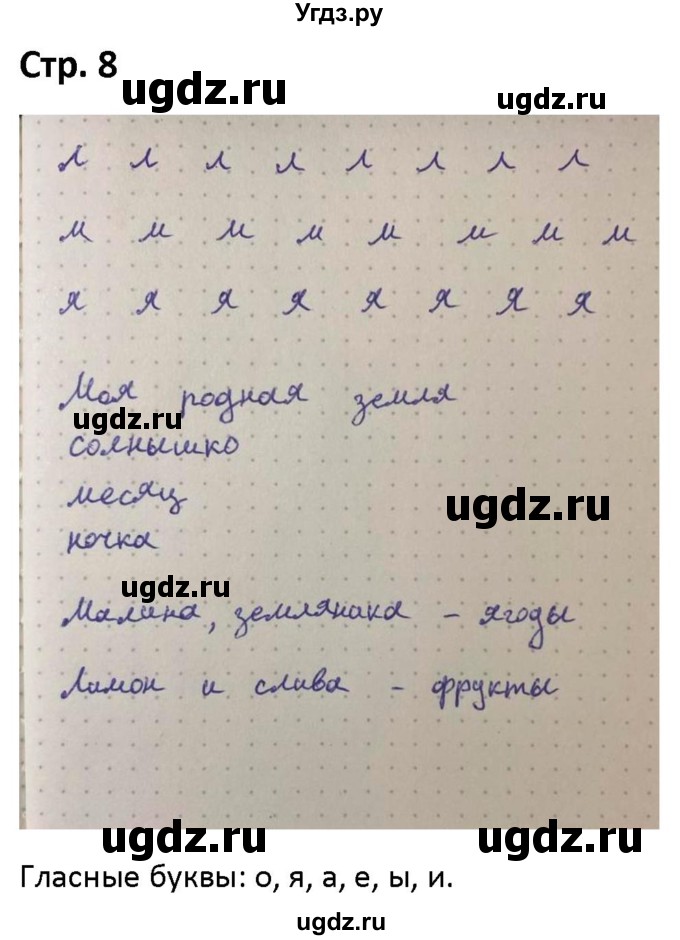 Угдз.ру
Стр. 8
ugdz.ru
ugdz.ru
л л л л л л л л
м м м м м м м м
я я я я я я я я
Моя родная земля
ugdz.ru
солнышко
месяц
ugdz.ru
ночка
ugdz.ru
Малина, земляника - ягоды
Лимон и слива - фрукты
ugdz.ru
ugdz.ru
Гласные буквы: о, я, а, е, ы, и.
ugdz.ru